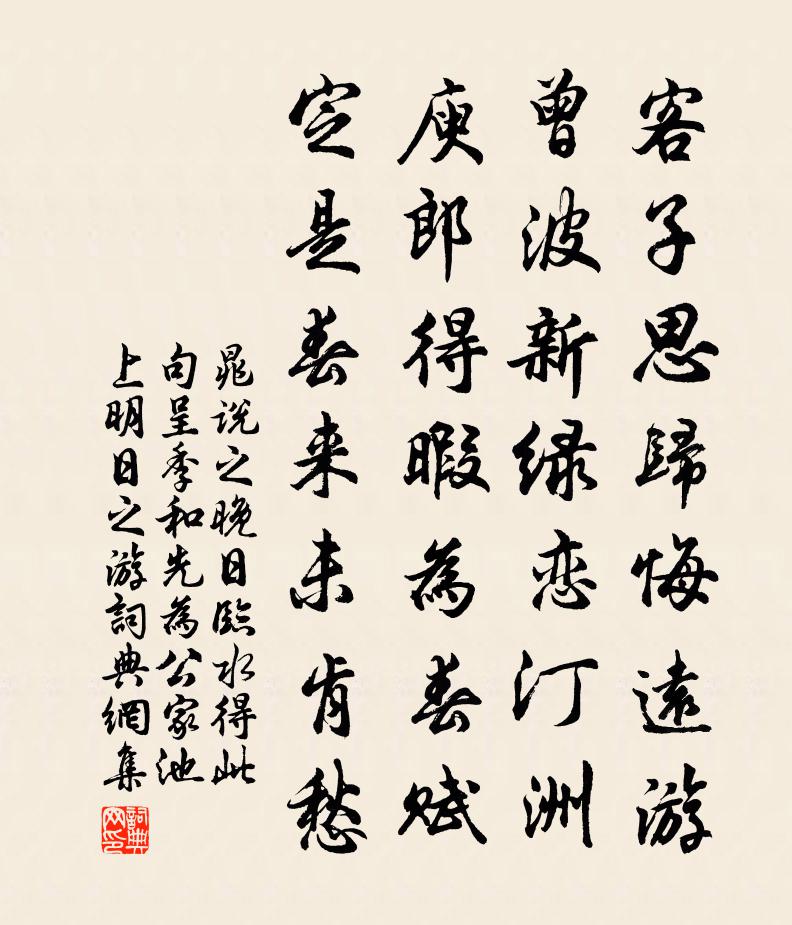 客子思歸悔遠游
曾波新緑恋汀洲
庾郎得暇為春賦
定是春来未肯愁
晁说之晚日臨水得此
句呈季和先為公家池
上明日之游詞典網集
詞典
网印